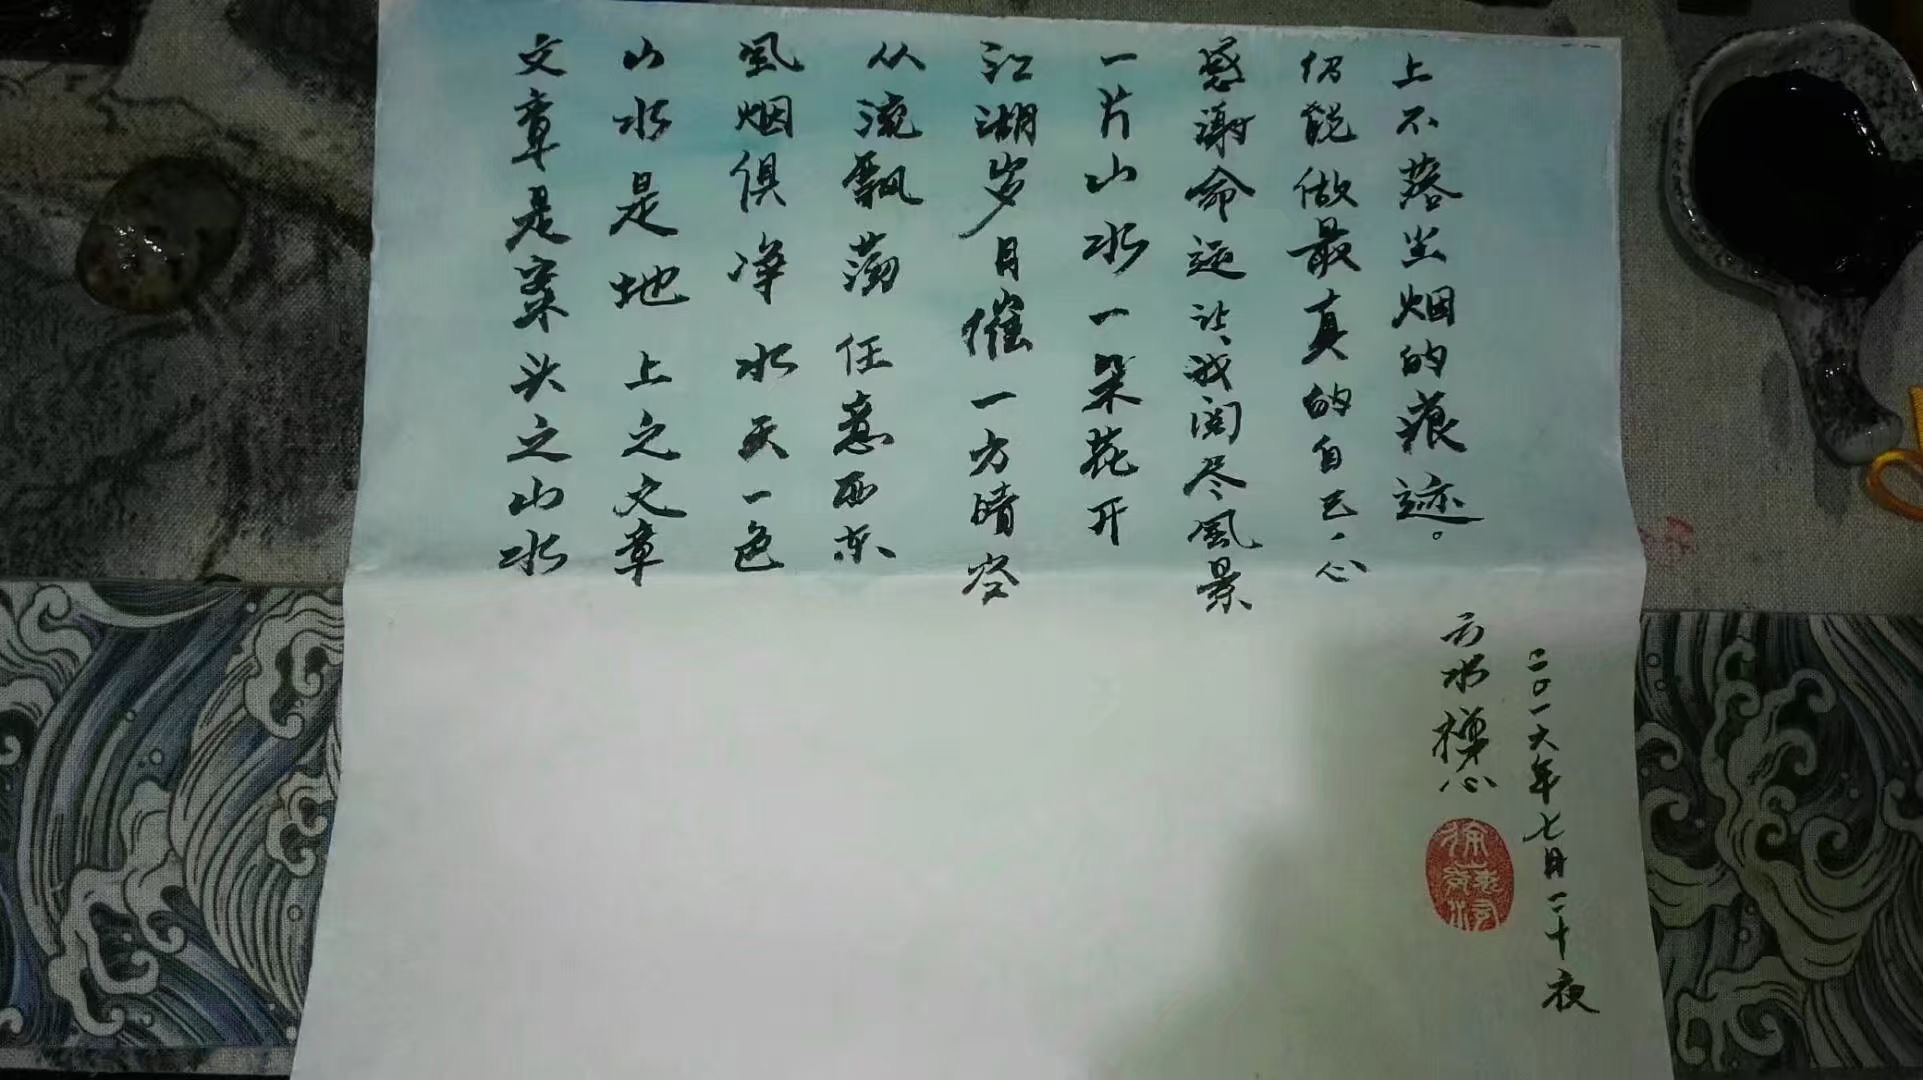 文章是案头之山水
山水是地上之文章
風烟俱净水天一色
从流飘荡任意西东
江湖岁月催一方晴空
一片山水一朵花开
感谢命运让我阅尽風景
仍能做最真的自己、心
上不落尘烟的痕迹。
云水禅心
二〇一六年七月二十夜